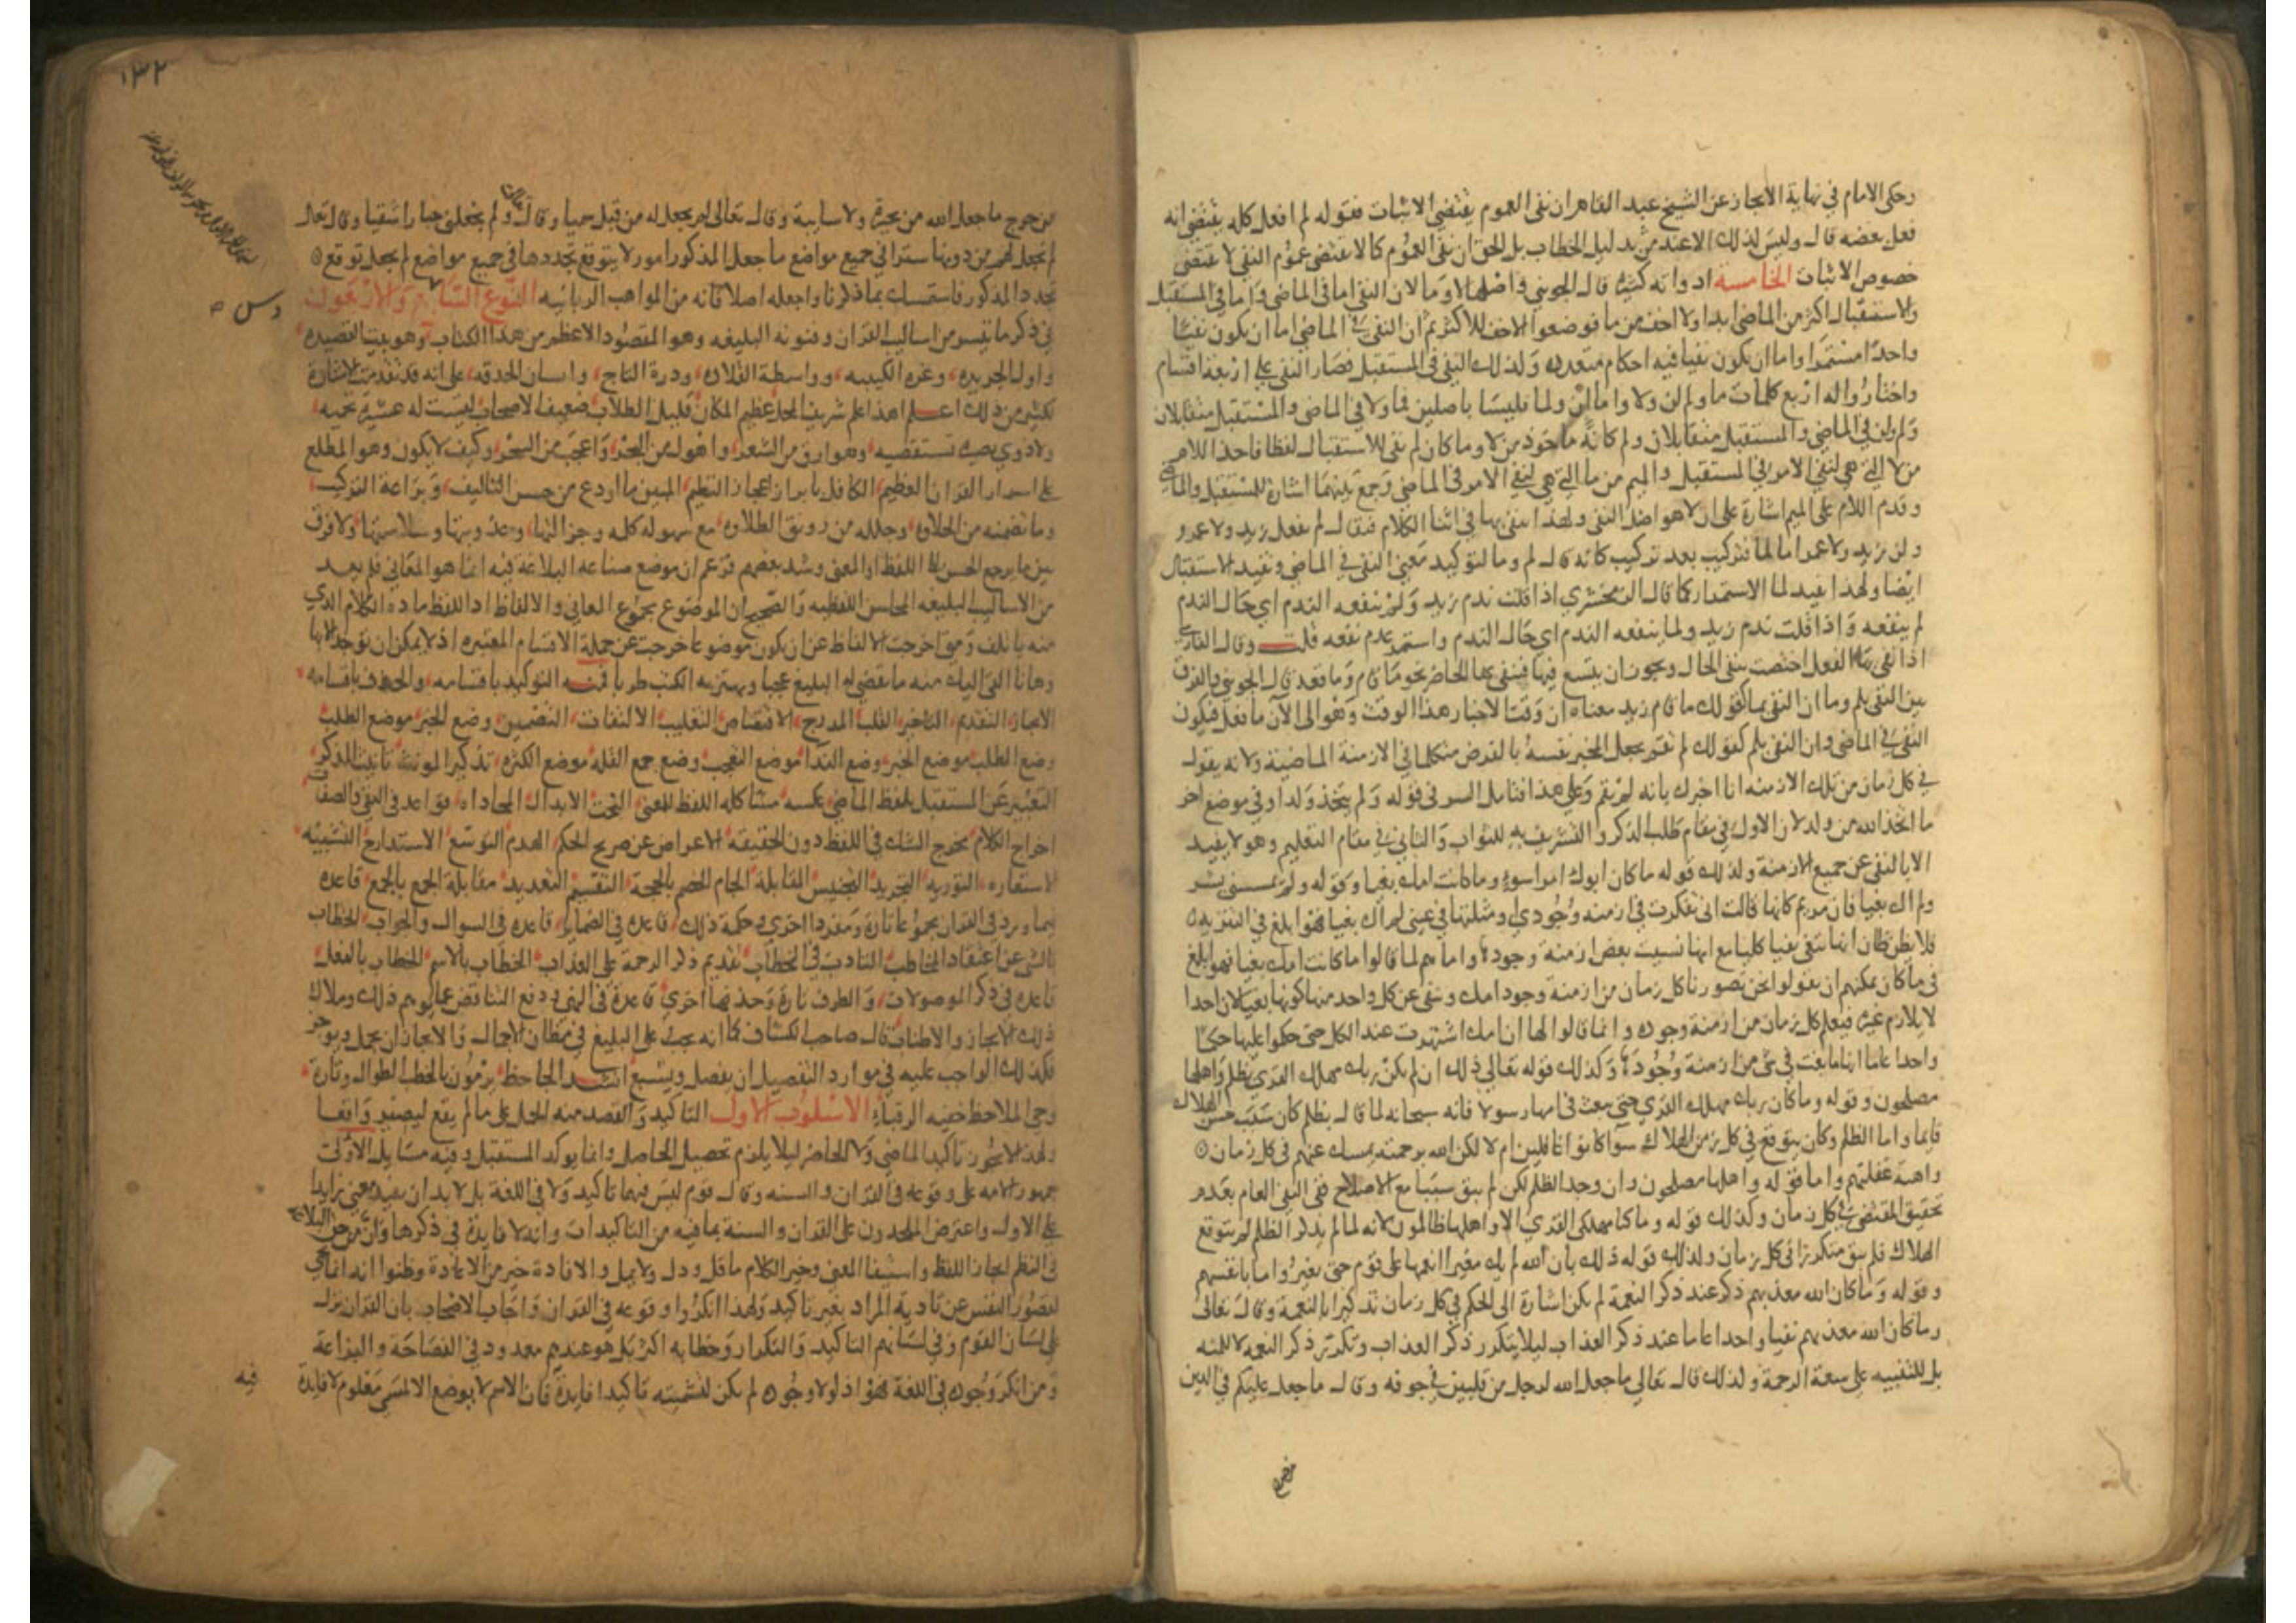 وحكى الامام في نهاية الايجاز عن الشيخ عبد القاهر ان نفى العموم يقتضي الاثبات فقوله لم افعل كله يقتضى انه
فعل بعضه قال وليس لذلك الا عند من بدليل الخطاب بل الحق ان نفى العموم كما لا يقتضى عموم النفى لا يقتضى
خصوص الاثبات الخامسة ادواته كثيرة قال الجويني واصلها لا وما لان النفي اما في الماضى واما في المستقبل
والاستقبال اكثر من الماضى ابدا ولا اخف من ما فوضعوا الاخف للاكثر ثم ان النفى في الماضى اما ان يكون نفيا
واحدا مستمرا واما ان يكون نفيا فيه احكام متعدده وكذلك النفى في المستقبل فصار النفى على اربعة اقسام
واختاروا له اربع كلمات ما ولم لن ولا واما ان ولما فليسا باصلين فما ولا في الماضى والمستقبل متقابلان
ولم ولن في الماضى والمستقبل متقابلان ولم كانه ماخوذ من لا وما كان لم نفى للاستقبال لفظا فاخذ اللام
من لا التي هي لنفي الامر في المستقبل والميم من ما التي هي لنفي الامر في الماضى وجمع بينهما اشارة للمستقبل والماضى
وقدم اللام على الميم اشارة على ان لا هو اصل النفى ولهذا ينفى بها في اثنا الكلام فيقال لم يفعل زيد ولا عمرو
ولن زيد ولا عمرا اما لما فتركيب بعد تركيب كانه قال لم وما لتوكيد معنى النفى في الماضى وتفيد الاستقبال
ايضا ولهذا يفيد لما الاستمرار كما قال الزمخشري اذا قلت ندم زيد ولم ينفعه الندم اي حال الندم
لم ينفعه واذا قلت ندم زيد ولما ينفعه الندم اي حال الندم واستمر عدم نفعه قلت وقال الفارسي
اذا نفى بها الفعل اختصت بنفى الحال ويجوز ان يتسع فيها فينفى بها الحاضر نحو ما قام وما قعد قال الجويني والفرق
بين النفى بلم وما ان النفى بما كقولك ما قام زيد معناه ان وقت الاخبار هذا الوقت وهو الى الآن ما فعل فيكون
النفى في الماضى وان النفى بلم كقولك لم يقم تجعل المخبر نفسه بالفرض متكلما في الازمنة الماضية ولانه يقول
في كل زمان من تلك الازمنه انا اخبرك بانه لم يقم وعلى هذا فتامل السر في قوله ولم يتخذ ولدا وفي موضع آخر
ما اتخذ الله من ولد لان الاول في مقام طلب الذكر والتشريف به للثواب والثاني في مقام التعليم وهو لا يفيد
الا بالنفى عن جميع الازمنة وكذلك قوله ما كان ابوك امرا سوء وما كانت امك بغيا وكقوله ولم يمسسنى بشر
ولم اك بغيا فان مريم كانها قالت انى تفكرت في ازمنه وجودي ومثلتها في عينى لم اك بغيا فهو ابلغ في التنزيه ٥
فلا يظن ظان انها تنفى نفيا كليا مع انها نسيت بعض ازمنة وجودها واما هم لما قالوا ما كانت امك بغيا فهو ابلغ
في ما كان يمكنهم ان يقولوا نحن تصورنا كل زمان من ازمنة وجود امك وننفى عن كل واحد منها كونها بغيا لان احدا
لا يلازم غيره فيعلم كل زمان من ازمنة وجوده وانما قالوا لها ان امك اشتهرت عند الكل حتى حكموا عليها حكما
واحدا عاما انها ما بغت في شى من ازمنة وجودها وكذلك قوله تعالى ذلك ان لم يكن ربك مهلك القرى بظلم واهلها
مصلحون وقوله وما كان ربك مهلك القرى حتى يبعث في امها رسولا فانه سبحانه لما قال بظلم كان سبب حسن الهلاك
قايما واما الظلم وكان يتوقع في كل زمن الهلاك سوآ كانوا غافلين ام لا لكن الله برحمته يمسك عنهم في كل زمان ٥
واهبة غفلتهم واما قوله واهلها مصلحون وان وجد الظلم لكن لم يبق سببا مع الاصلاح ففى النفى العام بعدم
تحقيق المقتضى في كل زمان وكذلك قوله وما كنا مهلكى القرى الا واهلها ظالمون لانه لما لم يذكر الظلم لم يتوقع
الهلاك فلم يبق متكررا في كل زمان وكذلك قوله ذلك بان الله لم يك مغيرا انعمها على قوم حتى يغيروا ما بانفسهم
وقوله وما كان الله معذبهم ذكر عند ذكر النعمة لم يكن اشارة الى الحكم في كل زمان تذكيرا بالنعمة وقال تعالى
وما كان الله معذبهم نفيا واحدا عاما عند ذكر العذاب ليلا يتكرر ذكر العذاب وتكرر ذكر النعمه لا للمنه
بل للتنبيه على سعة الرحمة وكذلك قال تعالى ما جعل الله لرجل من قلبين في جوفه وقال ما جعل عليكم في الدين
١٣٢
من حرج ما جعل الله من بحيرة ولا سايبة وقال تعالى لم يجعل له من قبل سميا وقال تعالى ولم يجعلنى جبارا شقيا وقال تعالى
لم نجعل لهم من دونها سترا في جميع مواضع ما جعل المذكور امور لا يتوقع تجددها في جميع مواضع لم يجعل توقع ٥
تجدد المذكور فاستمسك بما ذكرنا واجعله اصلا فانه من المواهب الربانيه النوع السابع والاربعون
في ذكر ما تيسر من اساليب القران وفنونه البليغه وهو المقصود الاعظم من هذا الكتاب وهو بيت القصيده
واول الجريده وغره الكتيبه وواسطة القلاده ودرة التاج وانسان الحدقه على انه قد تقدمت الاشارة
لكثير من ذلك اعلم ان هذا علم شريف المحل عظيم المكان قليل الطلاب ضعيف الاصحاب ليست له عشيرة تحميه
ولا ذوي بصيرة تستقصيه وهو ارق من الشعر واهول من البحر واعجب من السحر وكيف لا يكون وهو المطلع
على اسرار القران العظيم الكافل بابراز اعجاز النظم المبين ما اودع من حسن التاليف وبراعة التركيب
وما تضمنه من الحلاوه وجلله من رونق الطلاوه مع سهوله كلمه وجزالتها وعذوبتها وسلاستها ولا فرق
بين ما يرجع الحسن الى اللفظ او المعنى وشذ بعضهم فزعم ان موضع صناعه البلاغة فيه انما هو المعانى فلم يعد
من الاساليب البليغه المحاسن اللفظيه والصحيح ان الموضوع مجموع المعاني والالفاظ اذ اللفظ مادة الكلام الذي
منه يتالف ومتى اخرجت الالفاظ عن ان يكون موضوعا خرجت عن جملة الاقسام المعتبره اذ لا يمكن ان توجد الا بها
وها انا القى اليك منه ما يقضى له البليغ عجبا ويهتز به الكتب طربا فمنه التوكيد باقسامه والحذف باقسامه
الايجاز التقديم التاخير القلب المدرج الاقتصاص التغليب الالتفات التضمين وضع الخبر موضع الطلب
وضع الطلب موضع الخبر وضع الندا موضع التعجب وضع جمع القله موضع الكثره تذكير المونث تانيث المذكر
التعبير عن المستقبل بلفظ الماضى عكسه مشاكله اللفظ للمعنى النحت الابدال المحاذاه قواعد في النفى والصفات
اخراج الكلام مخرج الشك في اللفظ دون الحقيقه الاعراض عن صريح الحكم الهدم التوسع الاستدراج التشبيه
الاستعاره التوريه التجريد التجنيس المقابلة الجام الخصم بالحجة التقسيم التعديد مقابلة الجمع بالجمع قاعده
فيما ورد في القران مجموعا تارة ومفردا اخرى وحكمة ذلك قاعدة في الضماير قاعده في السوال والجواب الخطاب
بالشى عن اعتقاد المخاطب التادب في الخطاب تقديم ذكر الرحمة على العذاب الخطاب بالاسم الخطاب بالفعل
قاعده في ذكر الموصولات والظرف تارة وحذفها اخرى قاعدة في النهى ودفع التناقض عما يوهم ذلك وملاك
ذلك الايجاز والاطناب قال صاحب الكشاف كما انه يجب على البليغ في مظان الاجمال والايجاز ان يجمل ويوجز
فكذلك الواجب عليه في موارد التفصيل ان يفصل ويشبع انشد الجاحظ يرمون بالخطب الطوال وتارة
وحى الملاحظ خيفه الرقباء الاسلوب الاول التاكيد والقصد منه الحمل على ما لم يقع ليصير واقعا
ولهذا لا يجوز تاكيد الماضى ولا الحاضر ليلا يلزم تحصيل الحاصل وانما يوكد المستقبل وفيه مسايل الاولى
جمهور الامه على وقوعه في القران والسنه وقال قوم ليس فيهما تاكيد ولا في اللغة بل لا بد ان يفيد معنى زايدا
على الاول واعترض الملحدون على القران والسنة بما فيه من التاكيدات وانه لا فايدة في ذكرها وان من حق البلاغه
في النظم ايجاز اللفظ واستيفا المعنى وخير الكلام ما قل ودل ولا يمل والافادة خير من الاعادة وظنوا انه انما يجي
لقصور النفس عن تادية المراد بغير تاكيد ولهذا انكروا وقوعه في القران واجاب الاصحاب بان القران نزل
على لسان القوم وفي لسانهم التاكيد والتكرار وخطابه اكثر بل هو عندهم معدود في الفصاحة والبراعة
ومن انكر وجوده في اللغة فهو اذ لولا وجوده لم يكن لتسميته تاكيدا فايدة فان الاسم لا يوضع الا لمسمى معلوم لا فايدة
فيه